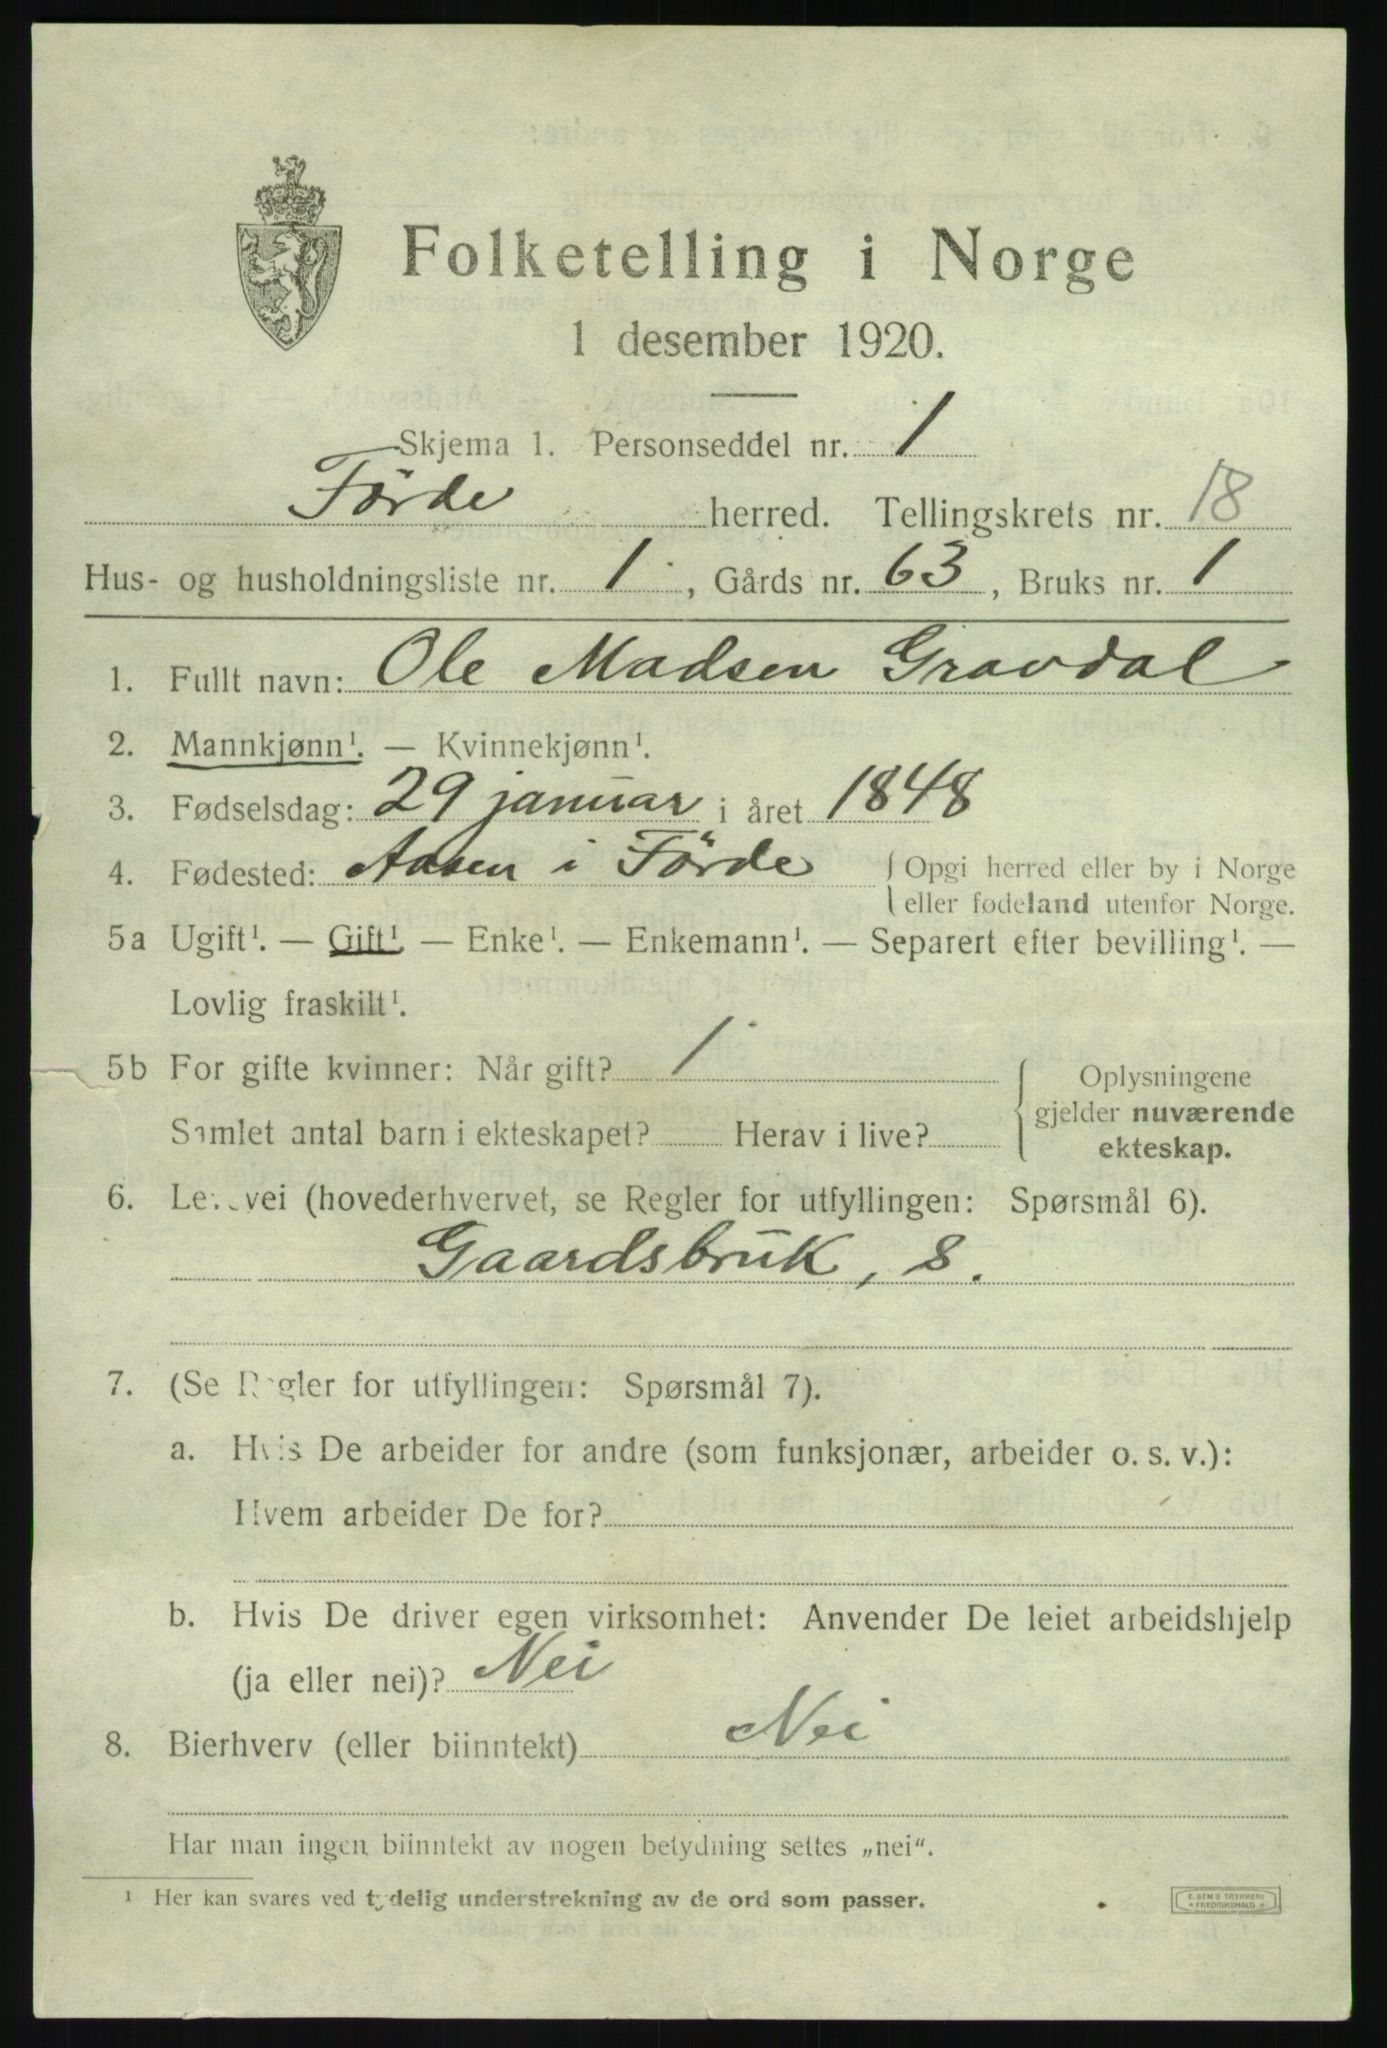 Folketelling i Norge
1 desember 1920.
Skjema 1. Personseddel nr. 1
Förde herred. Tellingskrets nr. 18
Hus- og husholdningsliste nr. 1, Gårds nr. 63, Bruks nr. 1
1. Fullt navn: Ole Madsen Gravdal
2. Mannkjønn¹. — Kvinnekjønn¹.
3. Fødselsdag: 29 januar i året 1848
4. Fødested: Aasen i Förde { Opgi herred eller by i Norge
eller fødeland utenfor Norge.
5a Ugift¹. — Gift¹. — Enke¹. — Enkemann¹. — Separert efter bevilling¹. —
Lovlig fraskilt¹.
5b For gifte kvinner: Når gift? 1
Samlet antal barn i ekteskapet? Herav i live?
{ Oplysningene
gjelder nuværende
ekteskap.
6. Levevei (hovederhvervet, se Regler for utfyllingen: Spørsmål 6).
Gaardsbruk, s.
7. (Se Regler for utfyllingen: Spørsmål 7).
a. Hvis De arbeider for andre (som funksjonær, arbeider o. s. v.):
Hvem arbeider De for?
b. Hvis De driver egen virksomhet: Anvender De leiet arbeidshjelp
(ja eller nei)? Nei
8. Bierhverv (eller biinntekt) Nei
Har man ingen biinntekt av nogen betydning settes „nei“.
¹ Her kan svares ved tydelig understrekning av de ord som passer.
E. SEM'S TRYKKERI
* FREDRIKSHALD *